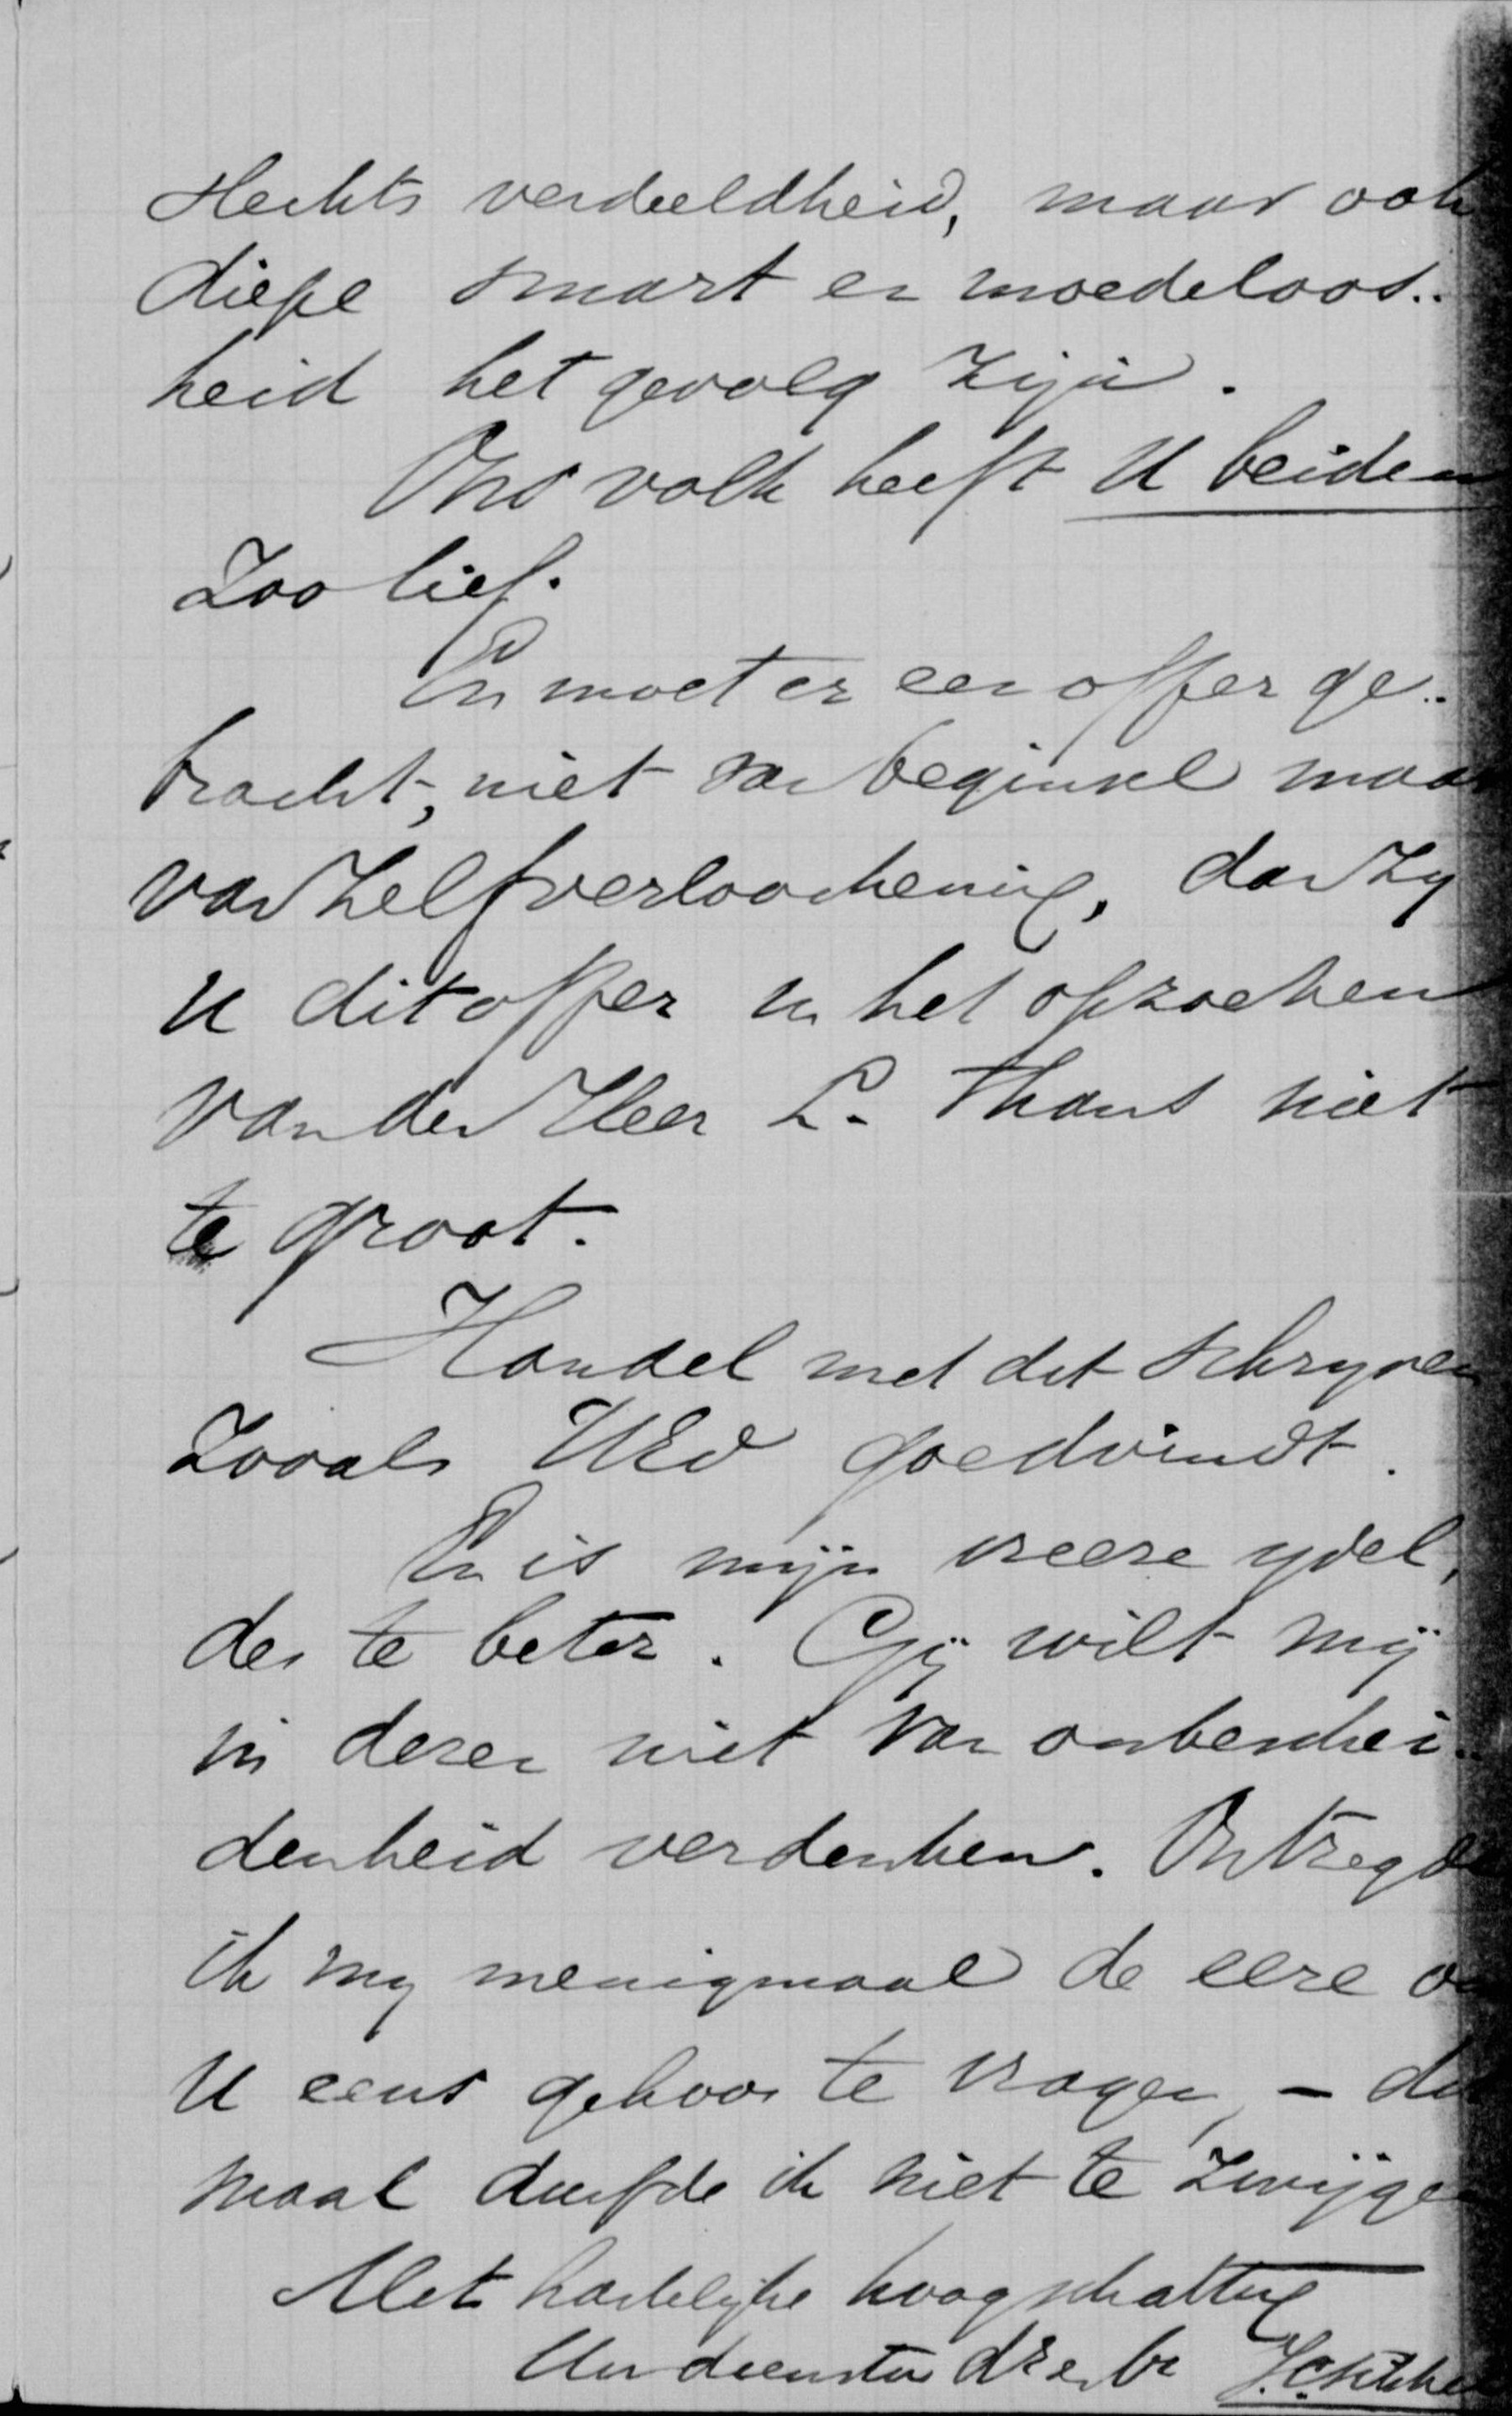 slechts verdeeldheid, maar ook
diepe smart en moedeloos..
heid het gevolg zijn.
Ons volk heeft U beiden
zoo lief.
En moet er een offer ge..
bracht, niet van beginsel maar
van zelfverloochening, dan zy
U dit offer in het opzoeken
van den Heer L. thans niet
te groot.
Handel met dit schryven
zooals UEd goedvindt.
En is mijn vreeze ydel,
des te beter. Gij wilt mij
in dezen niet van onbeschei..
denheid verdenken. Ontzegde
ik my menigmaal de eere om
U eens gehoor te vragen, - dit
maal durfde ik niet te zwijgen
Met hartelijke hoogschatting
Uw dienstw dr en br